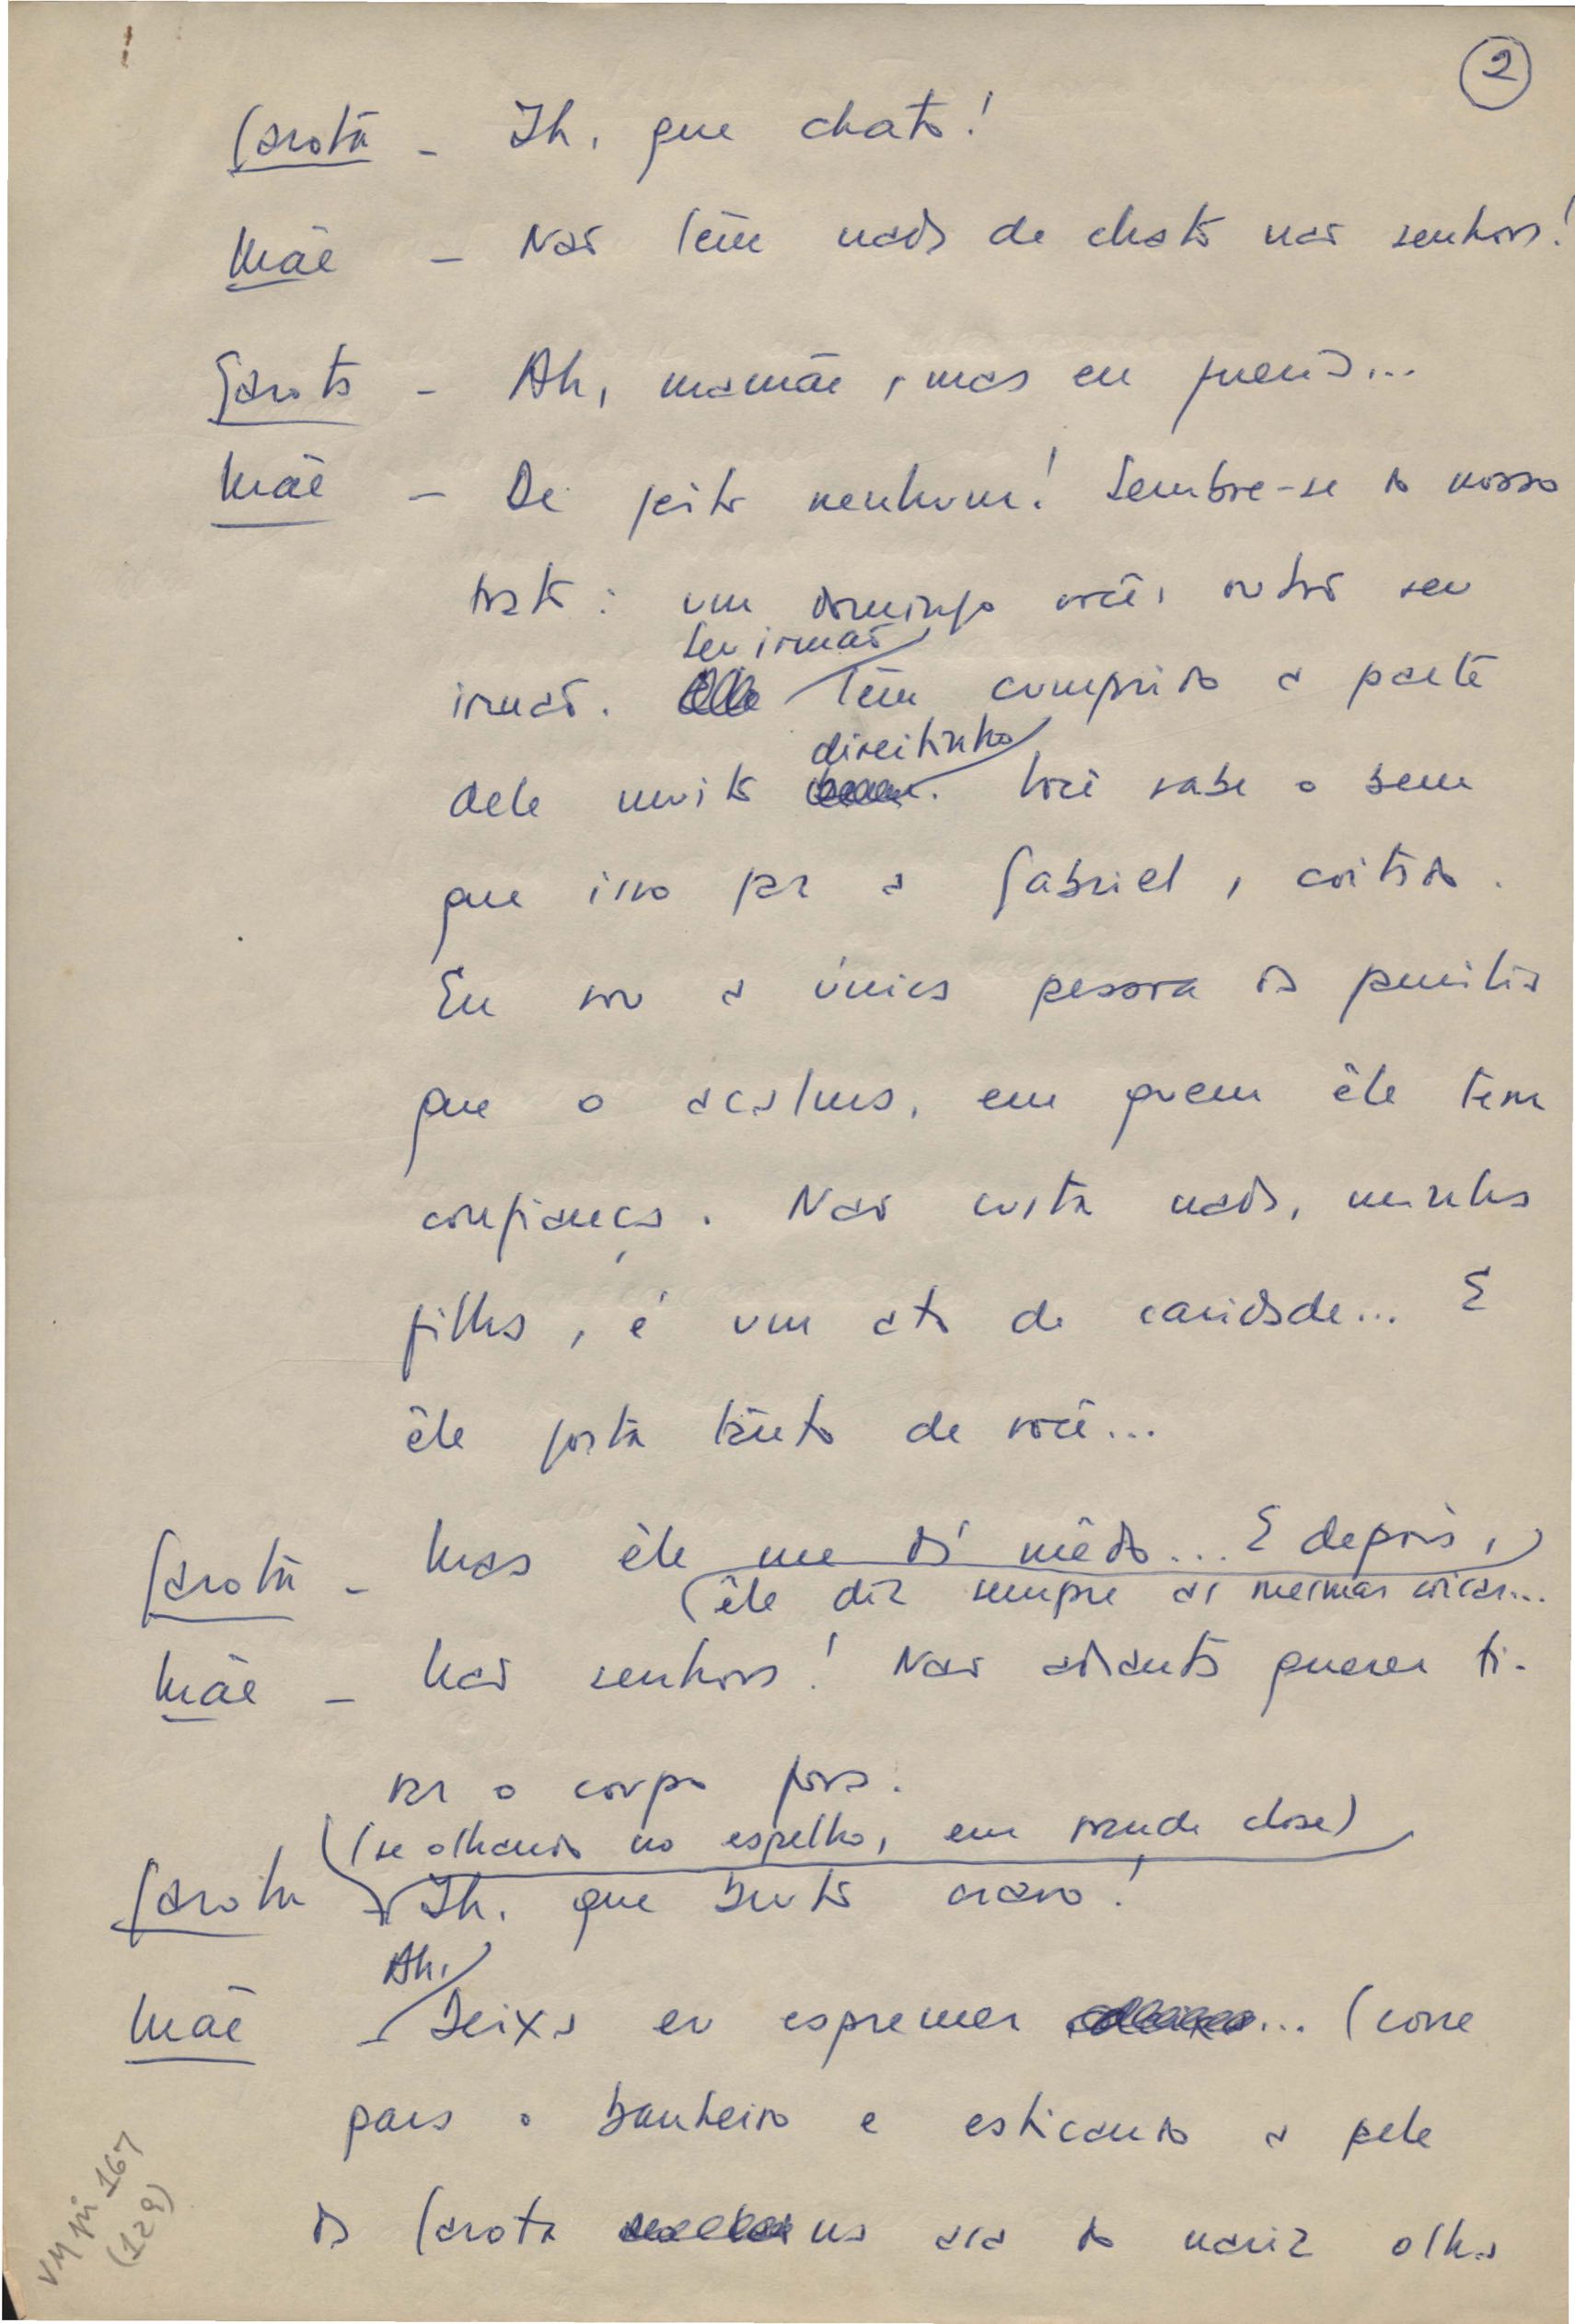 2
Garota - Ih, que chato!
Mãe - Não têm nada de chato não senhora!
Garota - Ah, mamãe, mas eu queria...
Mãe - De jeito nenhum! Lembre-se do nosso
trato: um domingo você, outro seu
seu irmão
irmão. têm cumprido a parte
direitinho
dele muito . Você sabe o bem
que isso faz a Gabriel, coitado.
Eu sou a única pessoa da família
que o acalma, em quem êle tem
confiança. Não custa nada, minha
filha, é um ato de caridade... E
êle gosta tanto de você...
Garota - Mas êle me dá mêdo... E depois,
êle diz sempre as mesmas coisas...
Mãe - Não senhora! Não adianta querer ti-
rar o corpo fora.
(se olhando no espelho, em grande close)
Garota - Ih, que bruto cravo!
Ah,
Mãe - Deixa eu espremer ... (corre
para o banheiro e esticando a pele
da Garota na asa do nariz olha
VM pi 167
(129)